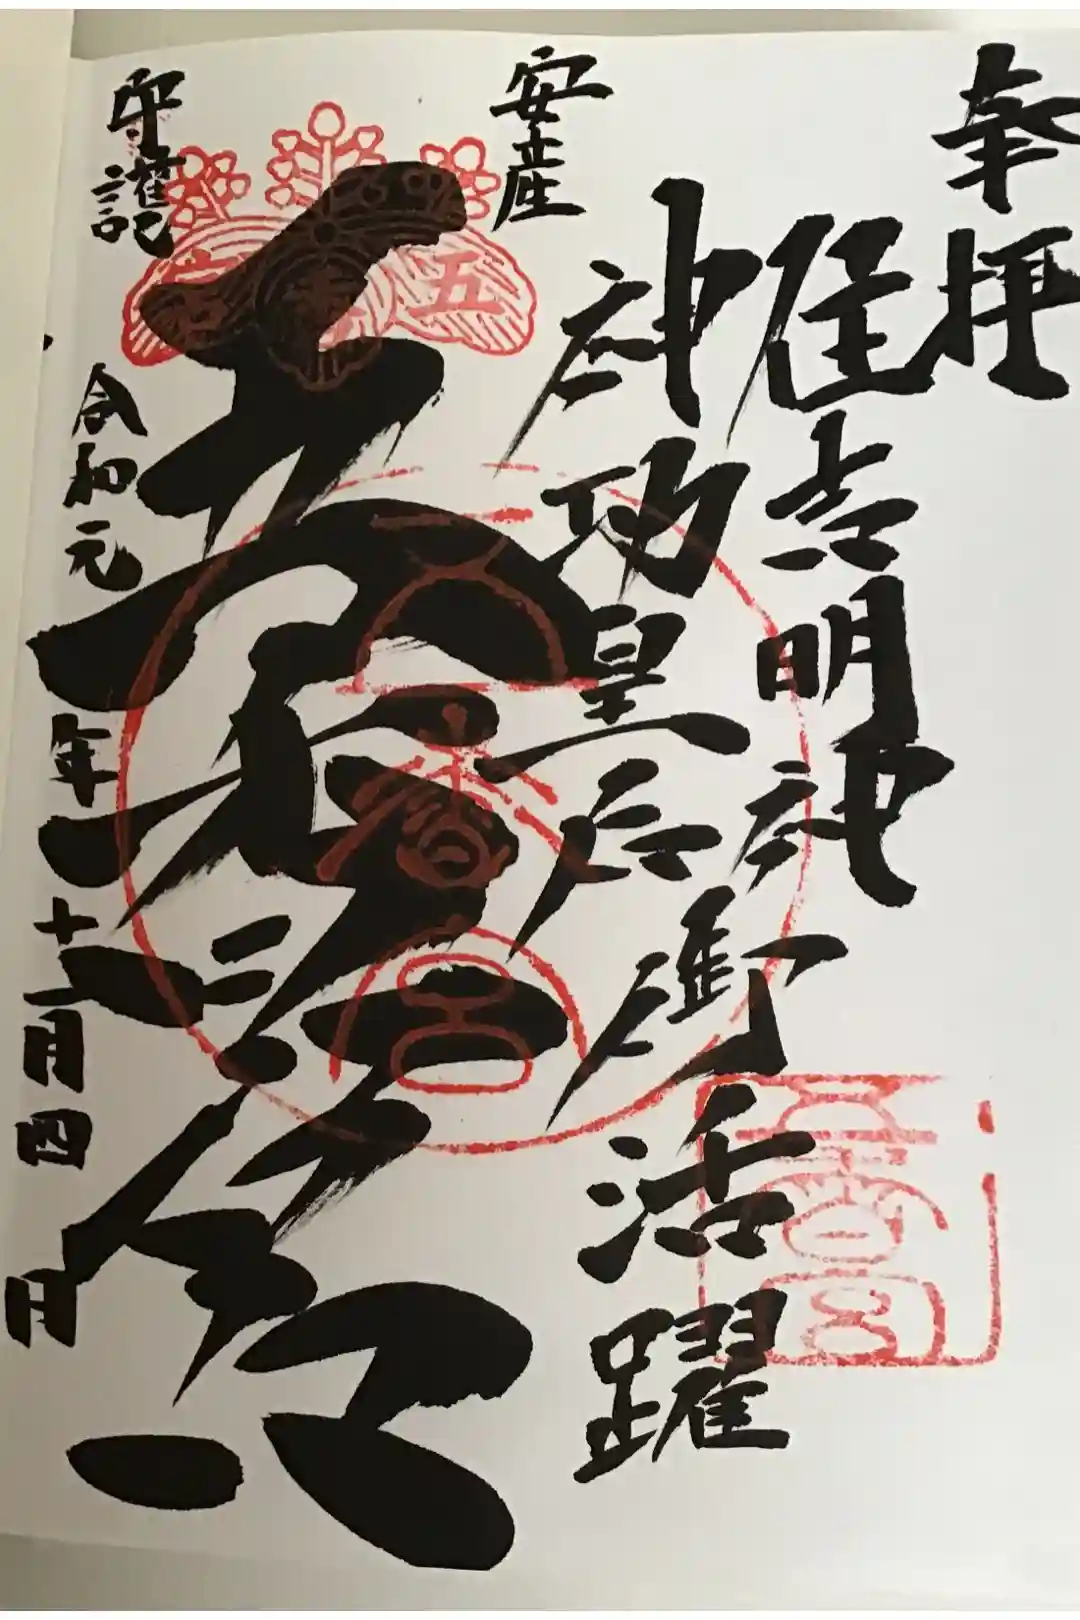 奉拝
住吉明神
神功皇后御活躍
安産
五香宮
守護
令和元年十二月四日
五香宮